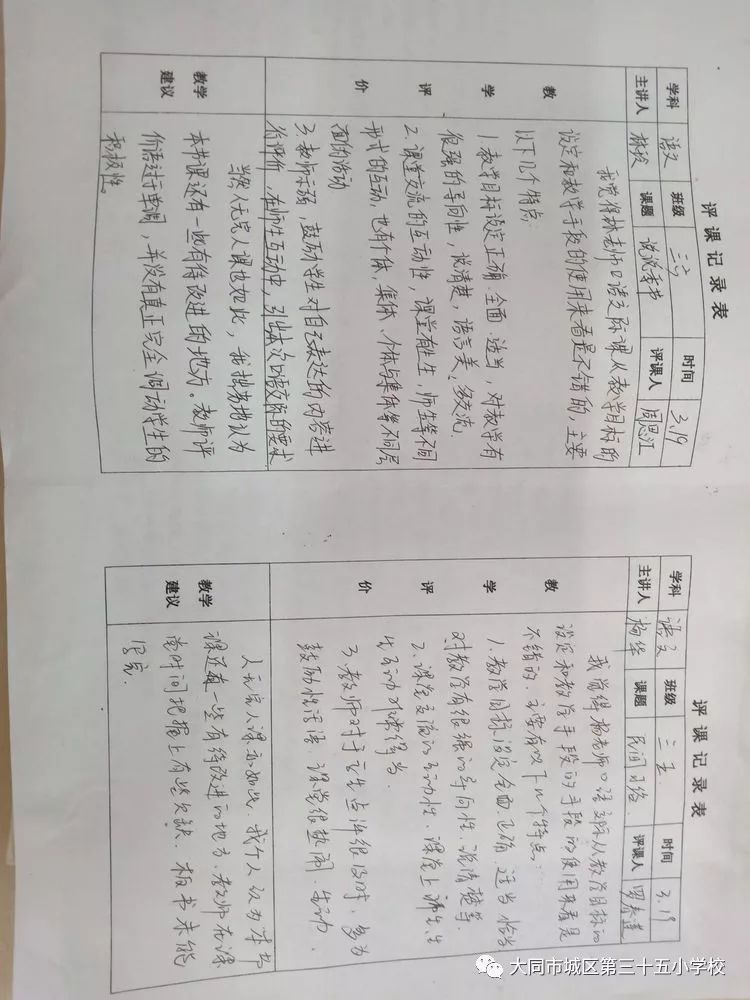 评课记录表
学科 语文 班级 三 时间 3.19
主讲人 课题 说说春节 评课人
教学评价
我觉得林老师口语交际课从教学目标的
设定和教学手段的使用来看是不错的,主要
以下几个特点:
1.教学目标设定正确、全面、适当,对教学有
很强的导向性,说清楚,语言美,多交流.
2.课堂交流的互动性,课堂有生生,师生等不同
形式的互动,也有个体、集体、个体与集体等不同层
面的活动
3.教师示弱,鼓励学生对自己表达的内容进
行评价,在师生互动中,引出本次口语交际的要求
教学建议
当然人无完人课也如此,我拙劣地认为
本节课还有一些有待改进的地方。教师评
价语过于单调,并没有真正完全调动学生的
积极性。
评课记录表
学科 语文 班级 二五 时间 3.19
主讲人 杨华 课题 民间习俗 评课人 罗春莲
教学评价
我觉得杨老师口语交际从教学目标的
设定和教学手段的手段的使用来看是
不错的.主要有以下几个特点:
1.教学目标设定全面、正确、适当恰当
对教学有很强的导向性,说清楚等.
2.课堂交流的互动性,课堂上师生,生
生互动非常得当.
3.教师对于学生点评很及时,多为
鼓励性话语.课堂很热闹,生动.
教学建议
人无完人课亦如此.我个人认为本节
课还有一些有待改进的地方.教师在课
堂时间把握上有些欠缺.板书未能
完成.
大同市城区第三十五小学校